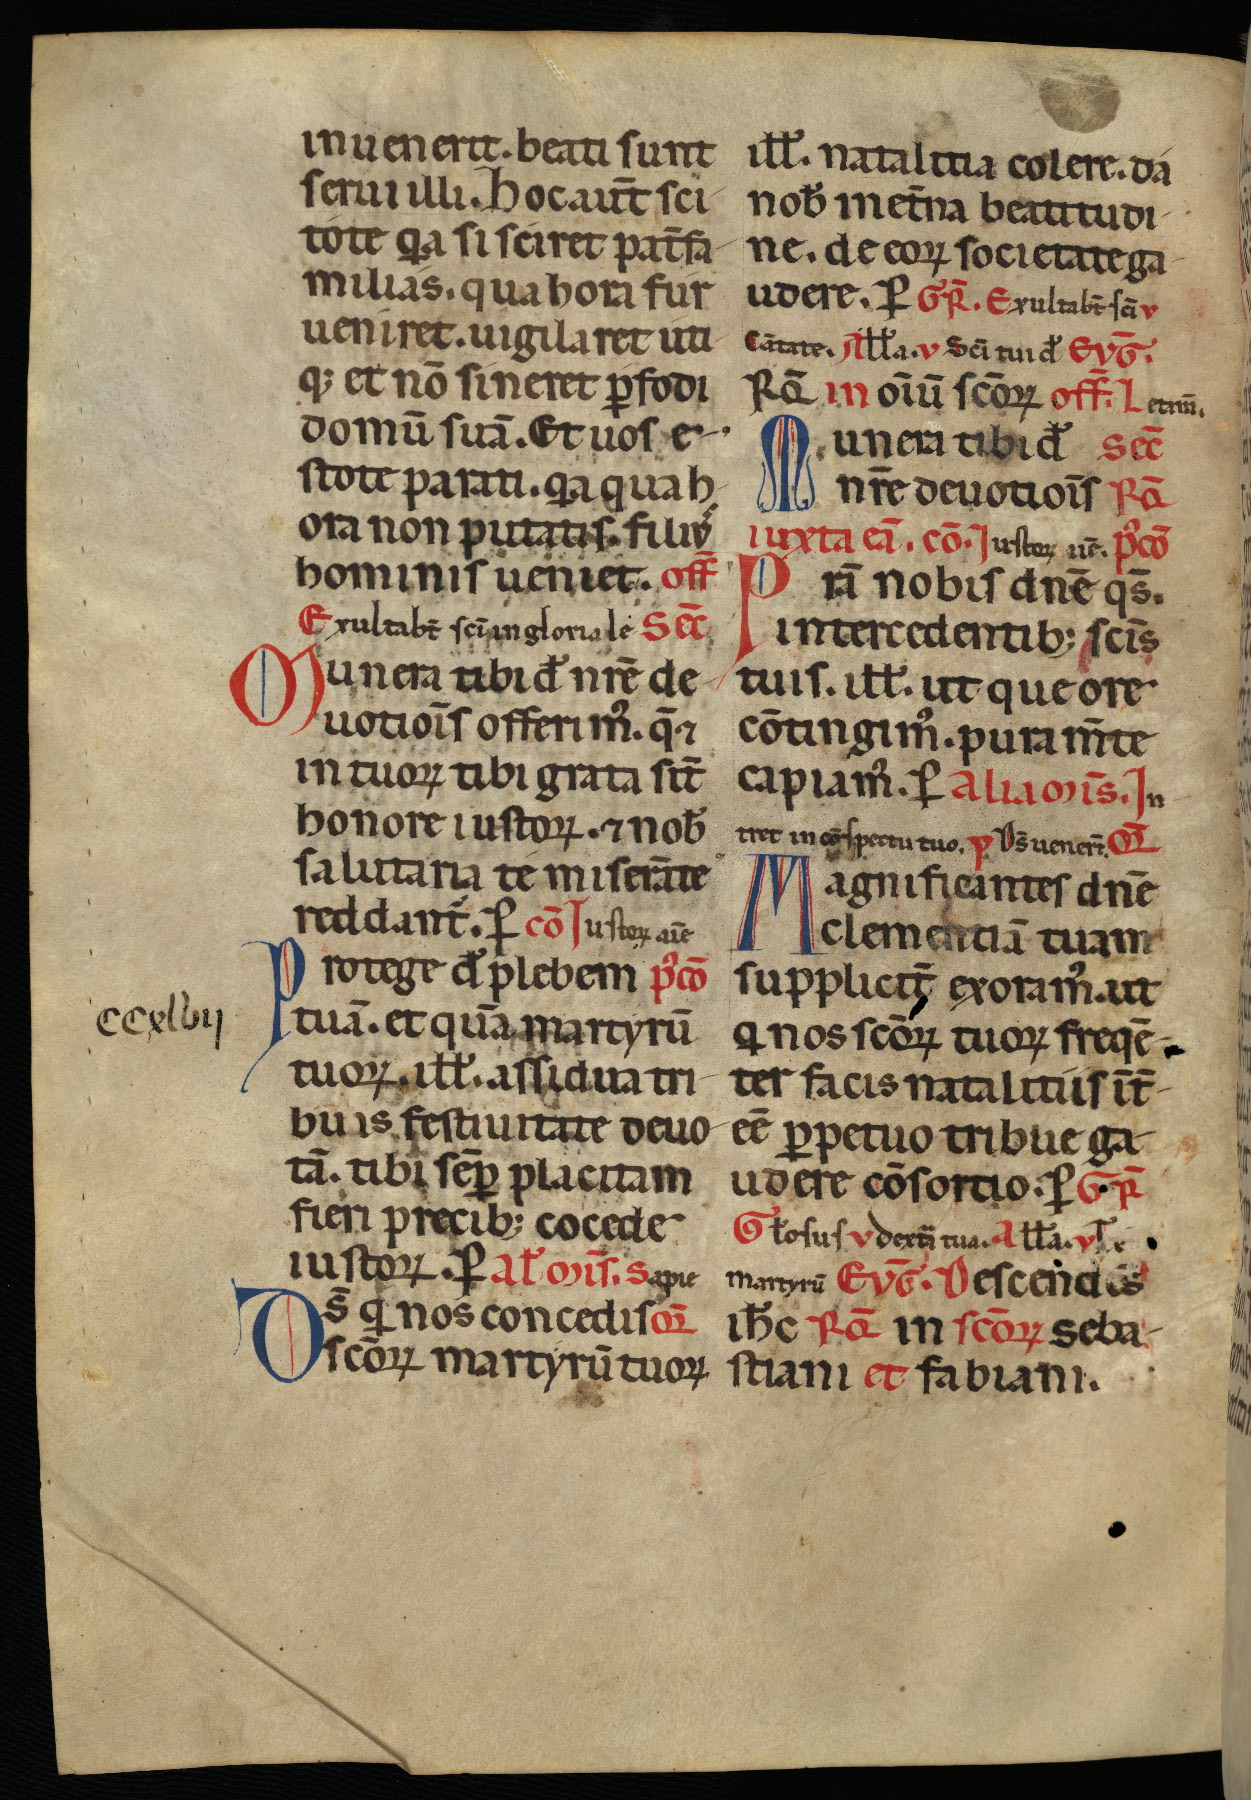 inuenerit. beati sunt
serui illi. Hoc aut̄ sci
tote q̄a si sciret pat̄fa
milias. qua hora fur
ueniret. uigilaret uti
q; et nō sineret ꝑfodi
domū suā. Et uos e
stote parati. q̄a qua h
ora non putatis. filiꝰ
hominis ueniet. off̄
Exultabt̄ sc̄i in gloria le Sec̄
Munera tibi d̄s nr̄e de
uotiōis offerimꝰ. q̄ ⁊
in tuoꝝ tibi grata sīt
honore iustoꝝ. ⁊ nob̄
salutaria te miserāte
reddant̄. ꝑ cō Iustoꝝ aīe
Protege d̄s plebem pꝰcō
tuā. et quā martyrū
ccxlvij
tuoꝝ. ill̄. assidua tri
buis festiuitate deuo
tā. tibi sēꝑ placitam
fieri precib; cocede
iustoꝝ. ꝑ Al̓ mis̄. Sapie
Ds̄ q̇ nos concedis or̄
scōꝝ martyrū tuoꝝ
ill̄. natalitia colere. da
nob̄ in et̄na beatitudi
ne. de eoꝝ societate ga
udere. ꝑ Gr̄. Exultabt̄ sc̄i v
Cātate. All̄a. v Sc̄i tui d̄ Evḡ.
Rq̄ in oīū scōꝝ off̄. Letam̄.
Munera tibi d̄s sec̄
nr̄e deuotiōis Rq̄
iuxta eā. cō. Iustoꝝ aīe. pꝰcō
Pr̄a nobis dn̄e qs̄.
intercedentib; scīs
tuis. ill̄. ut que ore
cōtingimꝰ. pura mt̄e
capiamꝰ. ꝑ Alia mis̄. In
tret in cōspectu tuo. p Ds̄ uener̄. or̄
Magnificantes dn̄e
clementiā tuam
supplicit̄ exoramꝰ. ut
q̇ nos scōꝝ tuoꝝ freqē
ter facis natalitiis īt̄
eē ꝑpetuo tribue ga
udere cōsortio. ꝑ G. R̄
Gl̓osus v dext̄a tua. All̄a. v Te
martyrū Evḡ. Descendēs
ih̄c Rq̄ in scōꝝ seba
stiani et fabiani.